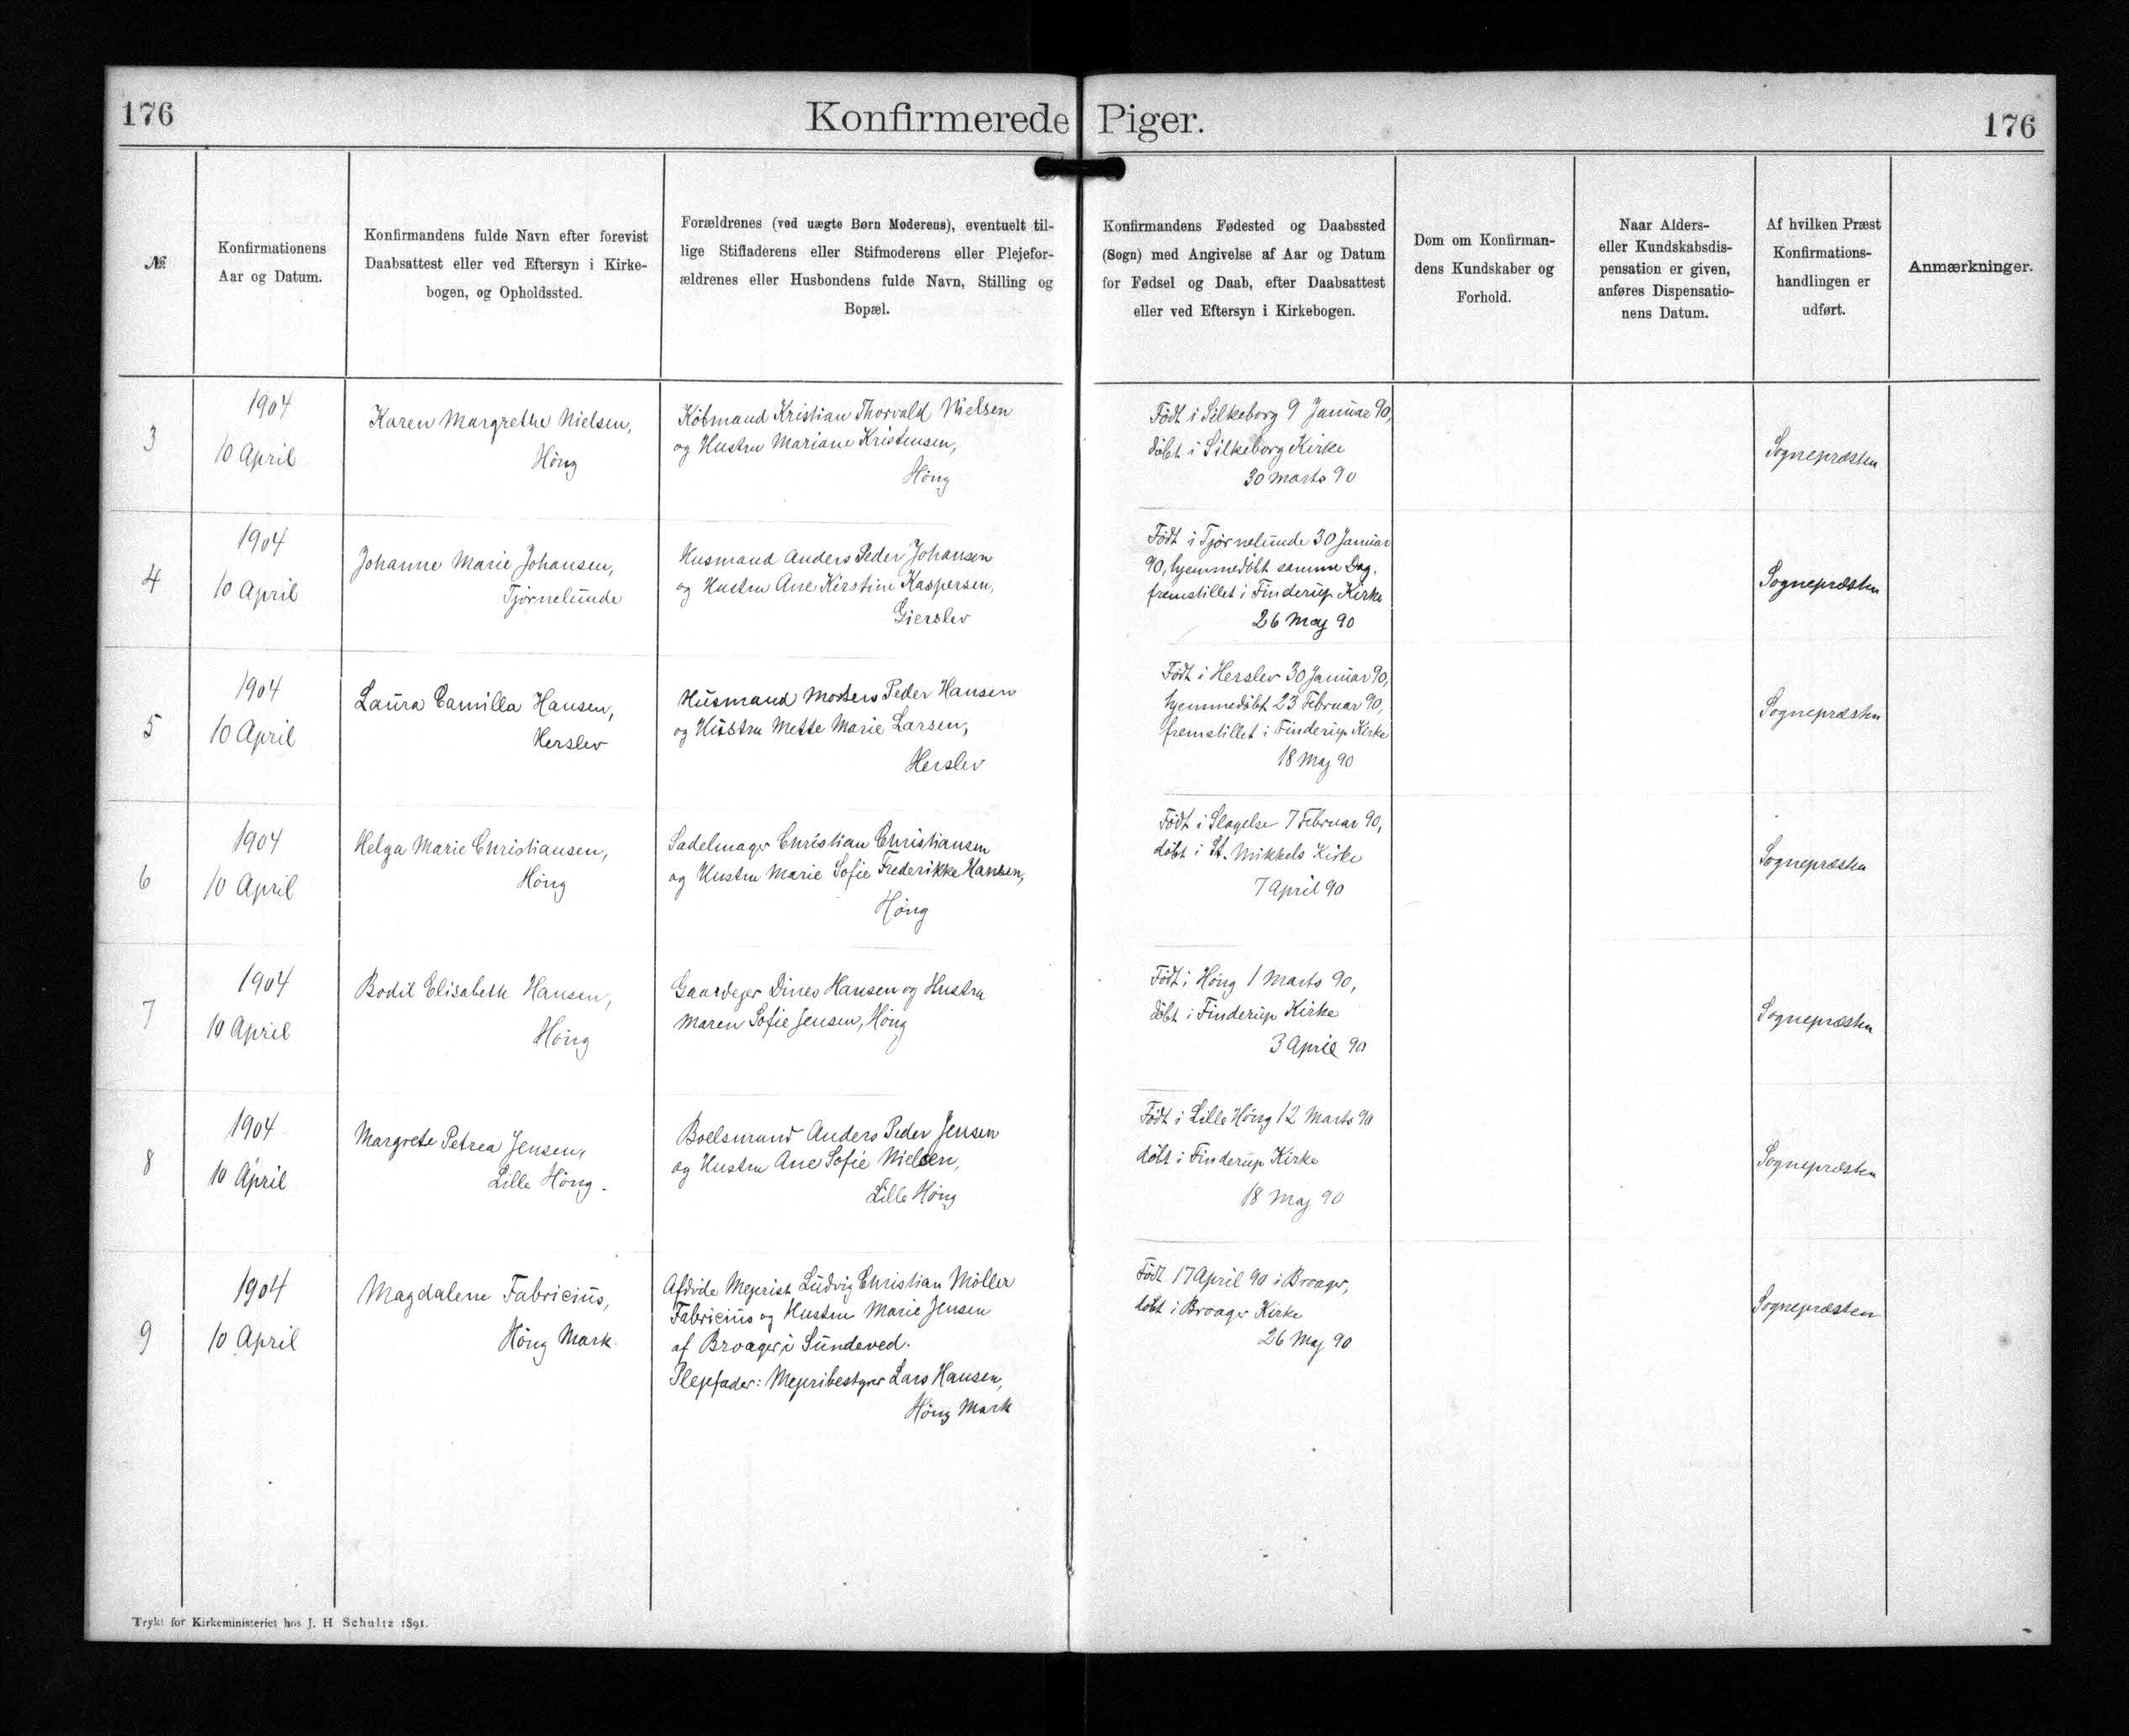 176
Konfirmerede Piger.
176
№.
Konfirmationens
Aar og Datum.
Konfirmandens fulde Navn efter forevist
Daabsattest eller ved Eftersyn i Kirke-
bogen, og Opholdssted.
Forældrenes (ved uægte Børn Moderens), eventuelt til-
lige Stiffaderens eller Stifmoderens eller Plejefor-
ældrenes eller Husbondens fulde Navn, Stilling og
Bopæl.
Konfirmandens Fødested og Daabssted
(Sogn) med Angivelse af Aar og Datum
for Fødsel og Daab, efter Daabsattest
eller ved Eftersyn i Kirkebogen.
Dom om Konfirman-
dens Kundskaber og
Forhold.
Naar Alders-
eller Kundskabsdis-
pensation er given,
anføres Dispensatio-
nens Datum.
Af hvilken Præst
Konfirmations-
handlingen er
udført.
Anmærkninger.
3
1904
10 April
Karen Margrethe Nielsen,
Höng
Köbmand Kristian Thorvald Nielsen
og Hustru Mariane Kristensen,
Höng
Födt i Silkeborg 9 Januar 90,
döbt i Silkeborg Kirke
30 Marts 90
Sognepræsten
4
1904
10 April
Johanne Marie Johansen,
Tjörnelunde
Husmand Anders Peder Johansen
og Hustru Ane Kirstine Kaspersen,
Gierslev
Födt i Tjörnelunde 30 Januar
90, hjemmedöbt samme Dag,
fremstillet i Finderup Kirke
26 Maj 90
Sognepræsten
5
1904
10 April
Laura Camilla Hansen,
Herslev
Husmand Mortens Peder Hansen
og Hustru Mette Marie Larsen,
Herslev
Födt i Herslev 30 Januar 90,
hjemmedöbt 23 Februar 90,
fremstillet i Finderup Kirke
18 Maj 90
Sognepræsten
6
1904
10 April
Helga Marie Christiansen,
Höng
Sadelmager Christian Christiansen
og Hustru Marie Sofie Frederikke Hansen,
Höng
Födt i Slagelse 7 Februar 90,
döbt i St. Mikkels Kirke
7 April 90
Sognepræsten
7
1904
10 April
Bodil Elisabeth Hansen,
Höng
Gaardejer Dines Hansen og Hustru
Maren Sofie Jensen, Höng
Födt i Höng 1 Marts 90,
döbt i Finderup Kirke
3 April 90
Sognepræsten
8
1904
10 April
Margrete Petrea Jensen,
Lille Höng.
Boelsmand Anders Peder Jensen
og Hustru Ane Sofie Nielsen,
Lille Höng
Födt i Lille Höng 12 Marts 90
döbt i Finderup Kirke
18 Maj 90
Sognepræsten
9
1904
10 April
Magdalene Fabricius,
Höng Mark.
Afdöde Mejerist Ludvig Christian Möller
Fabricius og Hustru Marie Jensen
af Broager i Sundeved.
Plejefader: Mejeribestyrer Lars Hansen,
Höng Mark
Födt 17 April 90 i Broager,
döbt i Broager Kirke
26 Maj 90
Sognepræsten
Trykt for Kirkeministeriet hos J. H Schultz 1891.